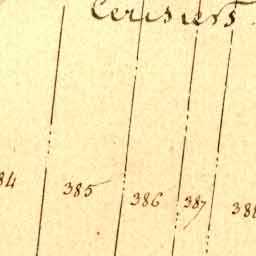 Cerisiers
84 385 386 387 388